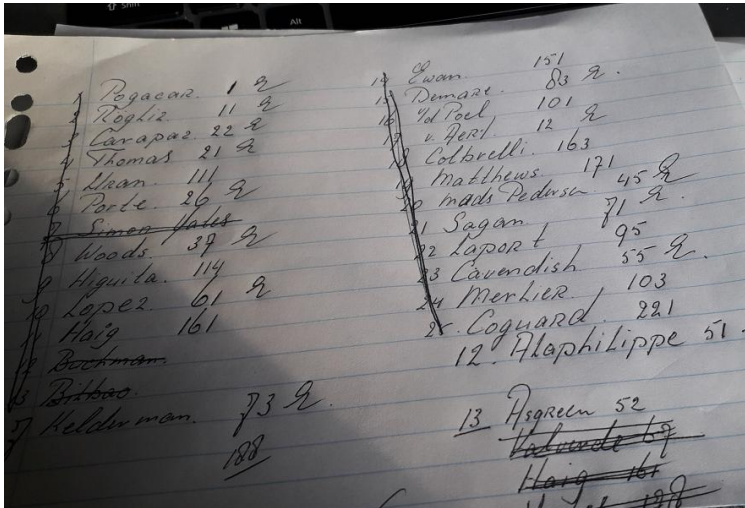 Shift
Alt
1 Pogacar. 1 R
2 Roglic. 11 R
3 Carapaz. 22 R
4 Thomas 21 R
5 Uran. 111
6 Porte. 26 R
7 Simon Yates
8 Woods. 37 R
9 Higuita. 114
10 Lopez 61 R
11 Haig 161
12 Buchman.
13 Bilbao.
7 Kelderman. 73 R.
188
14 Ewan. 151
15 Demare. 83 R.
16 v/d Poel 101
17 v. Aert. 12 R
18 Colbrelli. 163
19 Matthews 171
20 Mads Pedersen 45 R
21 Sagan 71 R.
22 Laport 95
23 Cavendish 55 R.
24 Merlier. 103
25. Coquard. 221
12. Alaphilippe 51.
13 Asgreen 52
Valverde 69
Haig 161